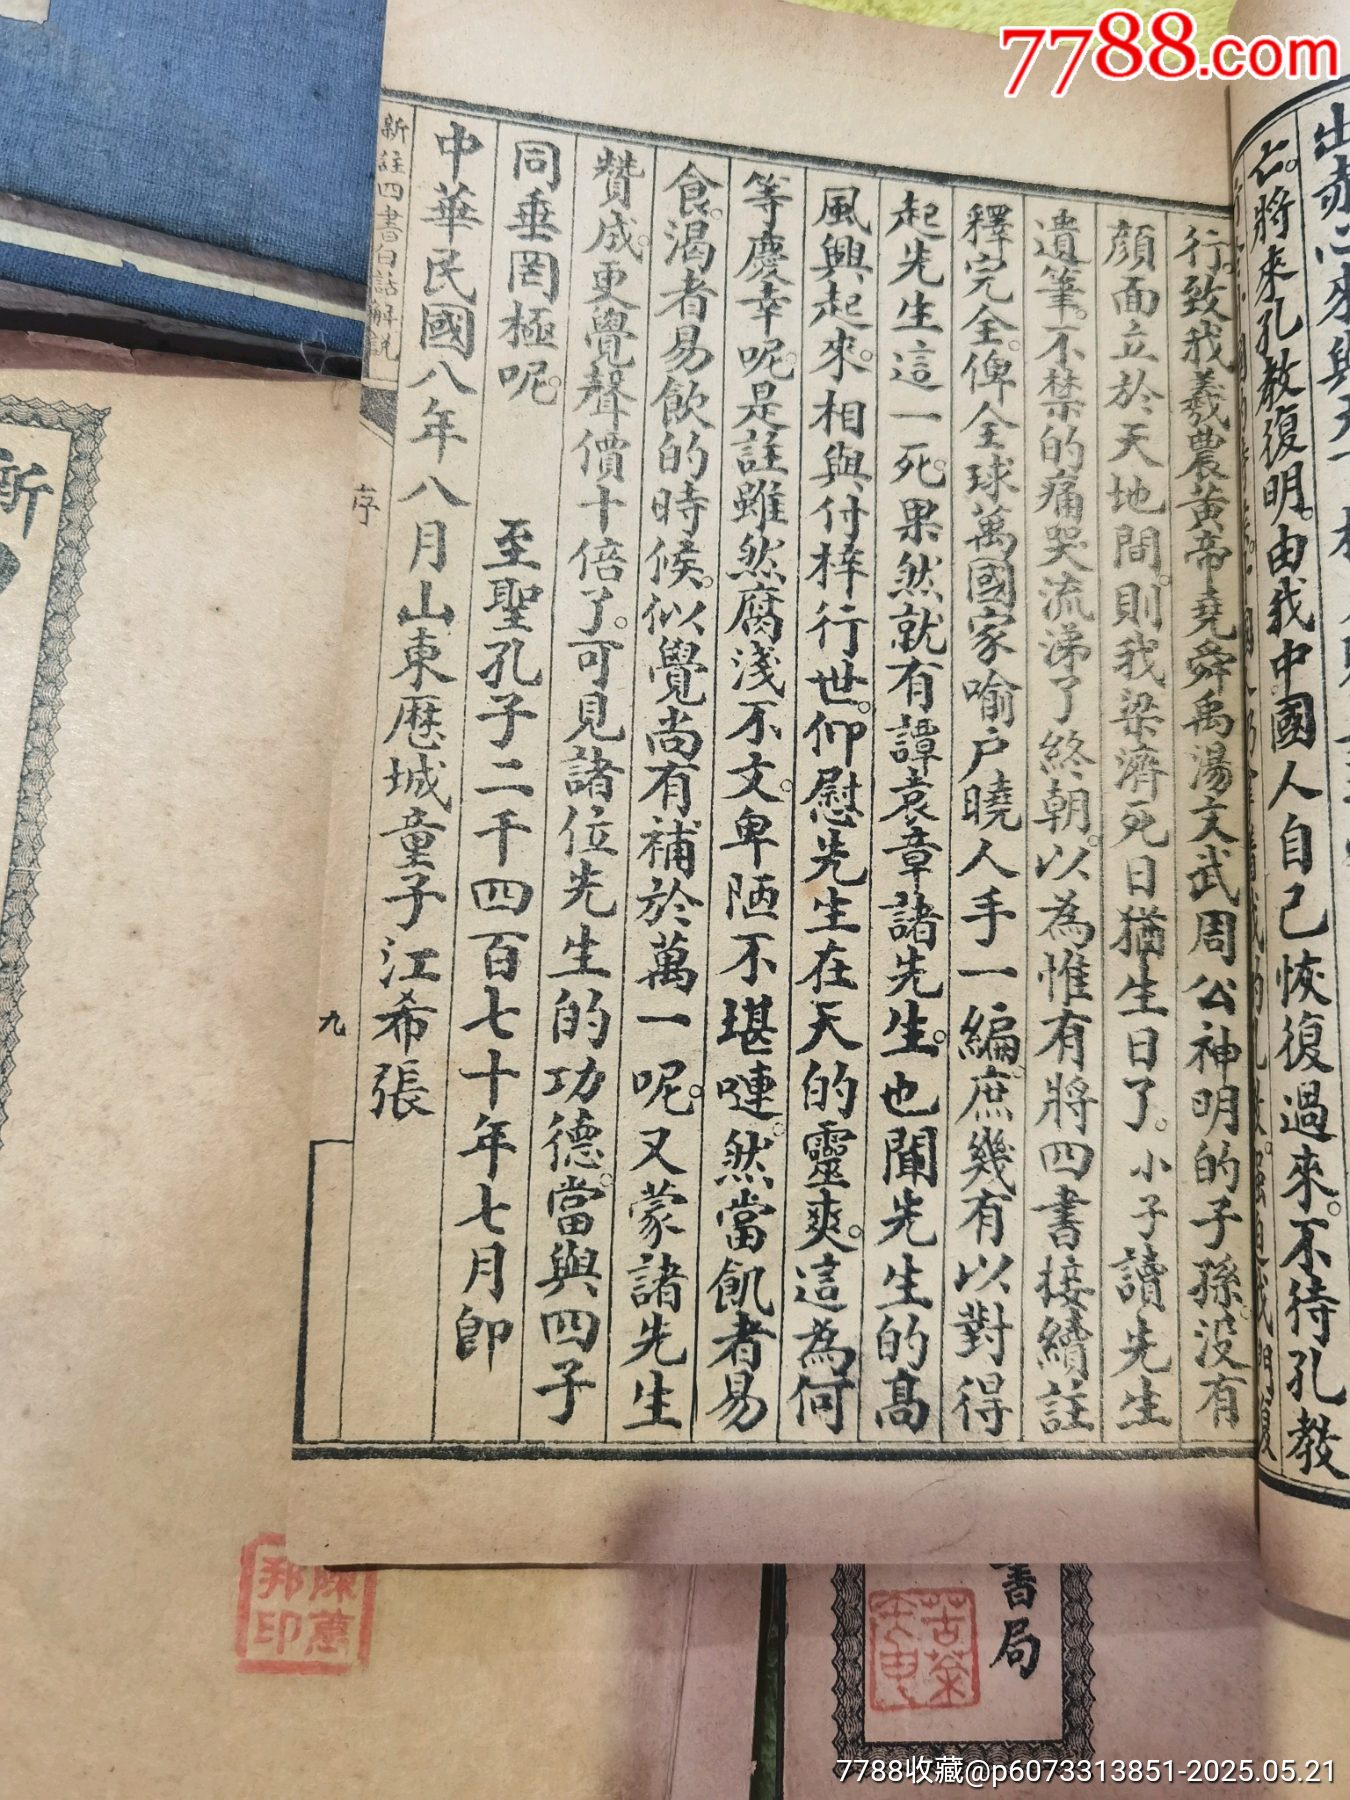 7788.com
仁。將來孔教復明。由我中國人自己恢復過來。不待孔教
行。致我羲農黃帝堯舜禹湯文武周公神明的子孫。沒有
顏面立於天地間。則我梁濟死日猶生日了。小子讀先生
遺筆。不禁的痛哭流涕了終朝。以為惟有將四書接續註
釋完全。俾全球萬國家喻戶曉人手一編。庶幾有以對得
起先生這一死。果然就有譚袁章諸先生。也聞先生的高
風興起來。相與付梓行世。仰慰先生在天的靈爽。這為何
等慶幸呢。是註雖然腐淺不文。卑陋不堪嗹。然當飢者易
食。渴者易飲的時候。似覺尚有補於萬一呢。又蒙諸先生
贊成。更覺聲價十倍了。可見諸位先生的功德。當與四子
同垂罔極呢。 至聖孔子二千四百七十年七月即
中華民國八年八月山東歷城童子江希張
新註四書白話解說
序
九
新
書局
7788收藏@p6073313851-2025.05.21